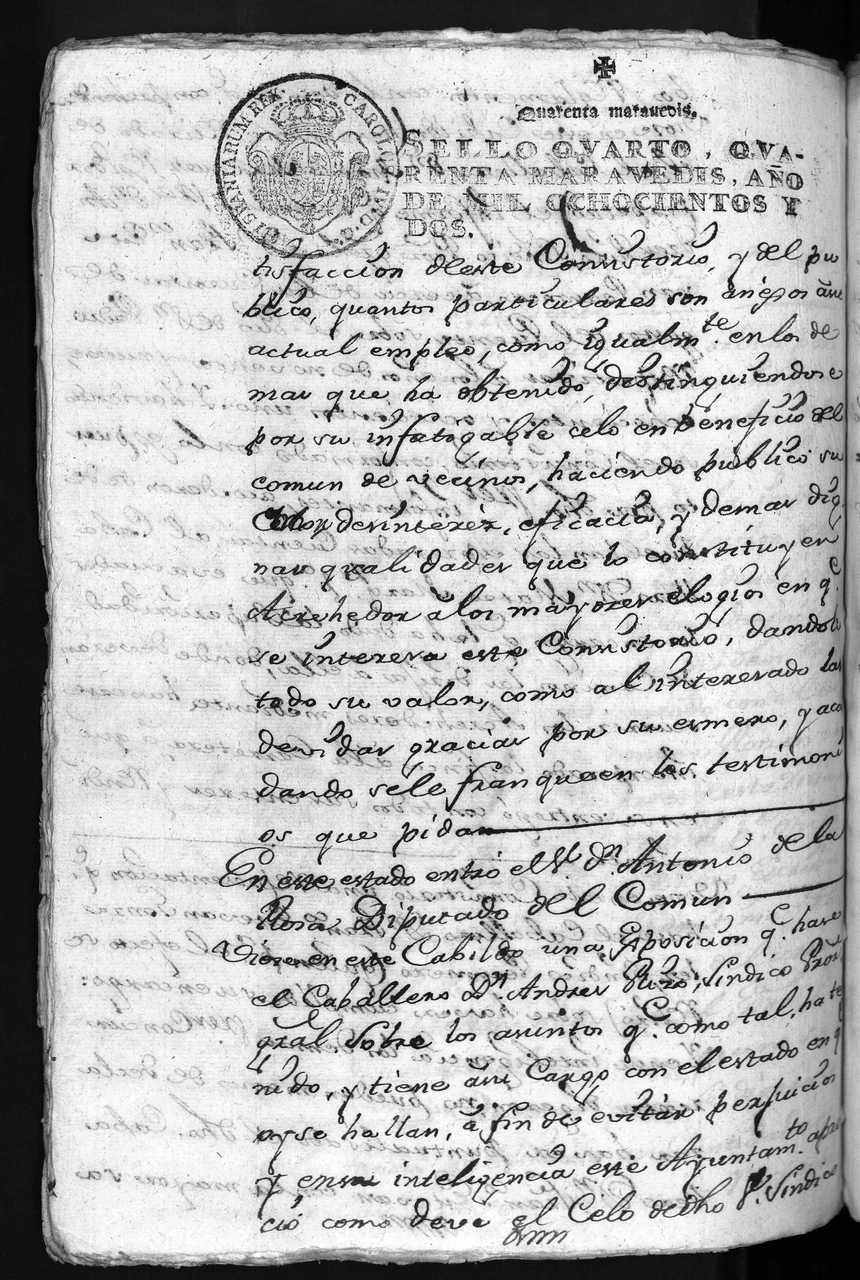 ✠
Quarenta maravedis.
HISPANIARUM REX. CAROLUS IV. D. G.
SELLO QVARTO, QVA-
RENTA MARAVEDIS, AÑO
DE MIL OCHOCIENTOS Y
DOS.
tisfaccion deeste Consistorio, y del pu
blico, quantos particulares son anejos asu
actual empleo, como igualm.te en los de
mas que ha obtenido, destinguiendose
por su infatigable celo en beneficio del
comun de vecinos, haciendo publico su
desinterés, eficacia, y demas dig
nas qualidades que lo constituyen
Acrehedor álos mayores elogios en q.e
se interesa este Consistorio, dandole
todo su valor, como al interesado las
devidas gracias por su esmero, y aco
dando sele franqueen los testimoni
os que pida
En este estado entró el S.r D.n Antonio de la
Rosa Diputado del Comun
Viose en este Cabildo una Esposicion q.e hace
el Caballero D.n Andres Pizo, Sindico Pror
gral sobre los asuntos q.e como tal, ha te
nido, y tiene asu Cargo con el estado en q.e
oy se hallan, á fin de evitar perjuicios
y en su inteligencia este Ayuntam.to apre
ció como deve el Celo dedho S.r Sindico